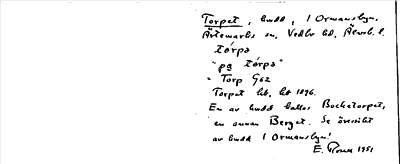 Torpet, hmdd, 1 Ormanslyn,
Örtomarks sn, Vedbo hd, Älvsb. l.
tórpə
"pɑ tórpə"
" Torp G62
Torpet hb. kt 1896.
En av hmdd kallas Bocketorpet,
en annan Berget. Se översikt
av hmdd 1 Ormanslyn!
E. 1951